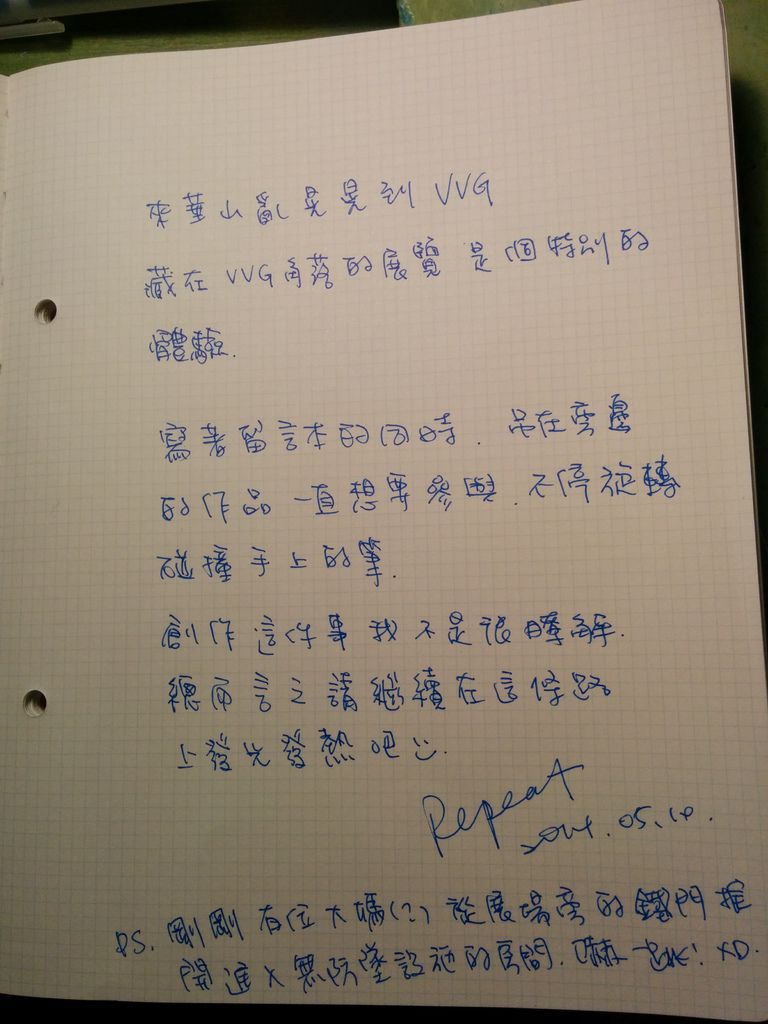 來華山亂晃晃到 VVG
藏在 VVG 角落的展覽 是個特別的
體驗.
寫著留言本的同時. 吊在旁邊
的作品一直想要參與. 不停旋轉
碰撞手上的筆.
創作這件事我不是很瞭解.
總而言之請繼續在這條路
上發光發熱吧 :).
Repeat
2014.05.10.
PS. 剛剛有位大媽(?) 從展場旁的鐵門推
開進入無防墜設施的房間. 嚇一跳! XD.